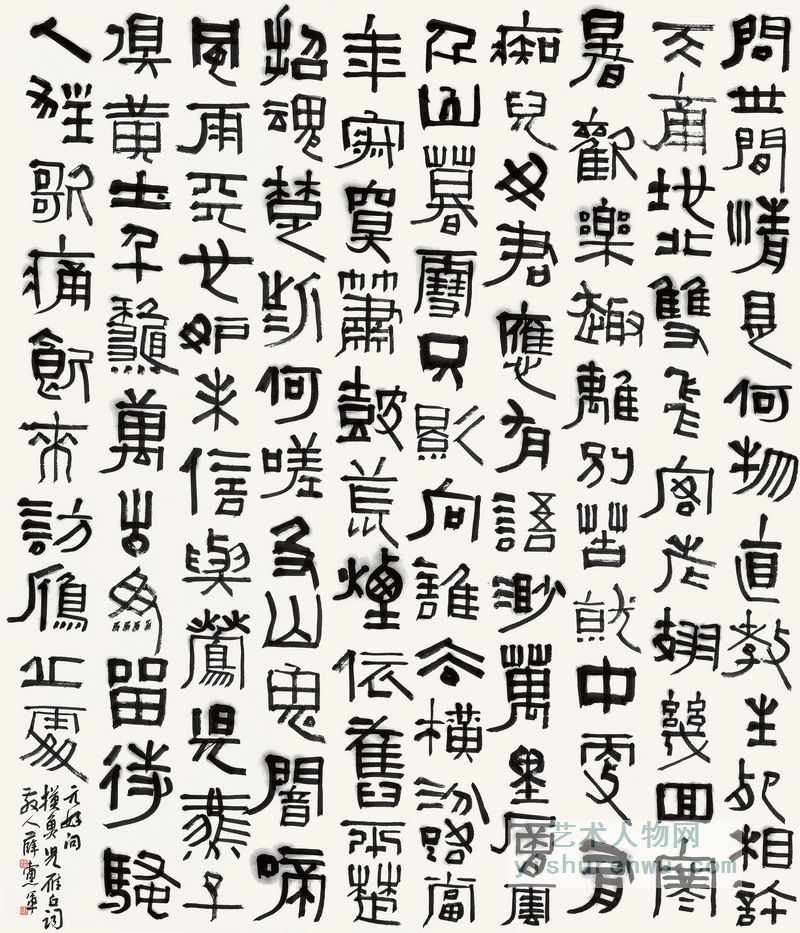 問世間情是何物直教生死相許
天南地北雙飛客老翅幾回寒
暑歡樂趣離別苦就中更有
痴兒女君應有語渺萬里層雲
千山暮雪只影向誰去橫汾路當
年寂寞簫鼓荒煙依舊平楚
招魂楚些何嗟及山鬼闇啼
風雨天也妒未信與鶯兒燕子
俱黃土千秋萬古為留待騷
人狂歌痛飲來訪雁丘處
元好问
摸魚兒雁丘詞
人薛憲軍
艺术人物网